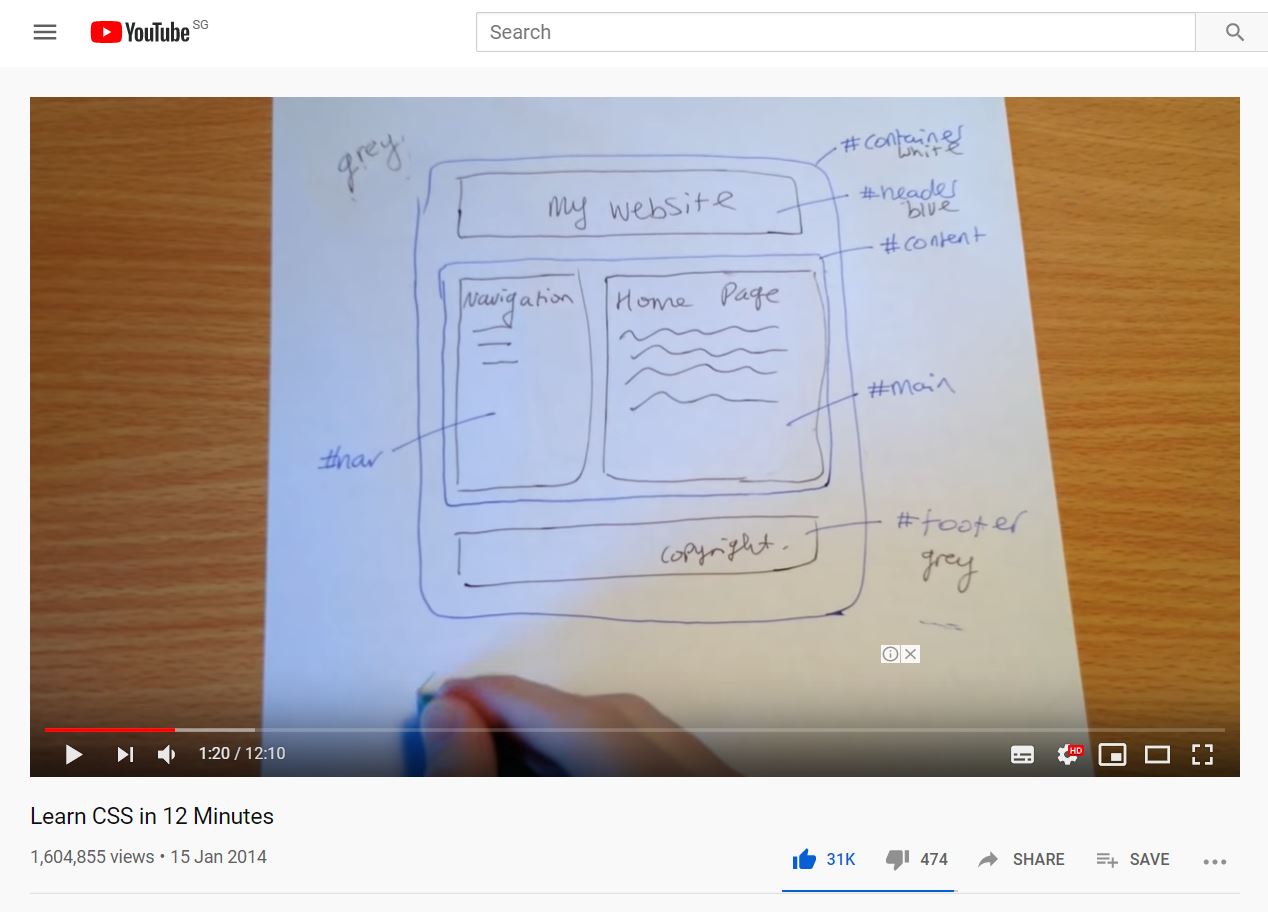 YouTube SG
Search
grey
#container
white
#header
blue
My website
#content
Navigation
Home Page
#main
#nav
#footer
grey
copyright.
1:20 / 12:10
HD
Learn CSS in 12 Minutes
1,604,855 views • 15 Jan 2014
31K
474
SHARE
SAVE